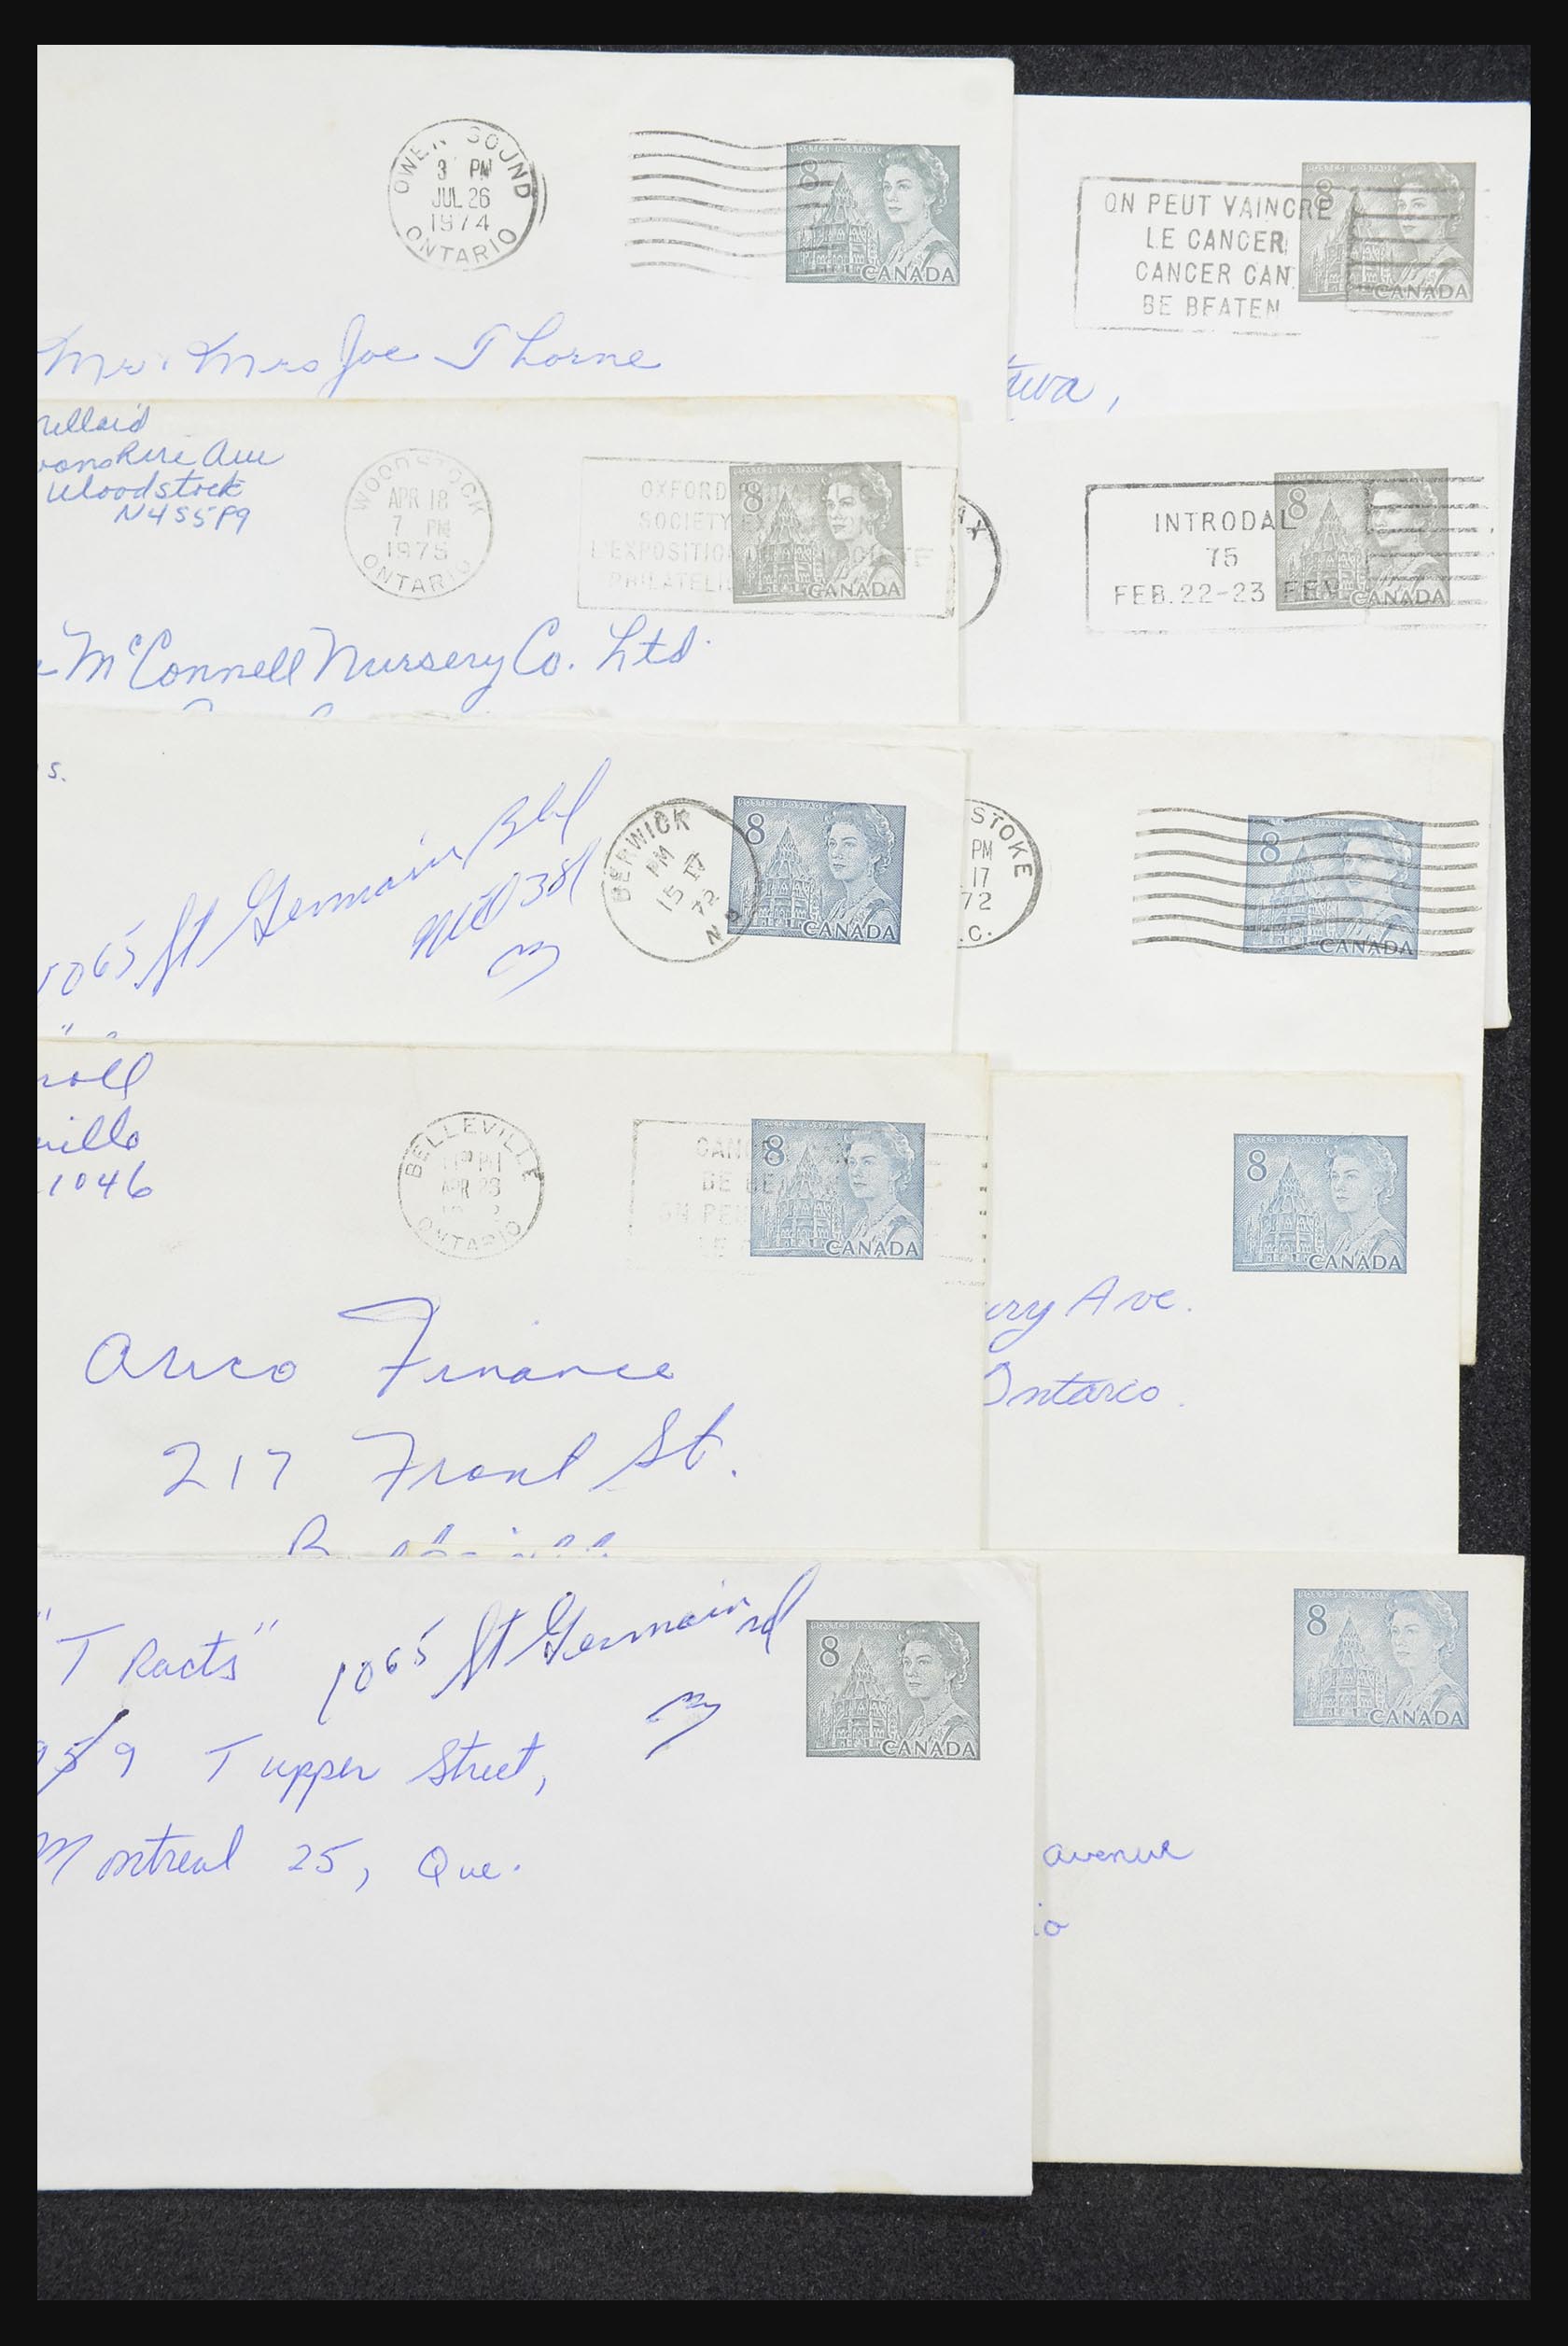 OWEN SOUND
3 PM
JUL 26
1974
ONTARIO
POSTES POSTAGE
8
CANADA
Mr. Mrs Joe Thorne
ON PEUT VAINCRE
LE CANCER
CANCER CAN
BE BEATEN
POSTES POSTAGE
8
CANADA
Woodstock
N4S5P9
WOODSTOCK
APR 18
7 PM
1975
ONTARIO
OXFORD
SOCIETY
L'EXPOSITION
8
CANADA
McConnell Nursery Co. Ltd.
INTRODAL
75
FEB. 22-23 FEV
8
CANADA
s.
1065 St Germain Bld
BERWICK
PM
15 IV
72
N
POSTES POSTAGE
8
CANADA
STOKE
PM
17
72
.C.
POSTAGE
8
CANADA
1046
BELLEVILLE
PM
APR
ONTARIO
BE
POSTES POSTAGE
8
CANADA
Avco Finance
217 Front St.
POSTES POSTAGE
8
CANADA
ury Ave.
Ontario.
"T Racts"
1065 St Germain
9 Tupper Street,
Montreal 25, Que.
POSTES POSTAGE
8
CANADA
POSTES POSTAGE
8
CANADA
avenue
io